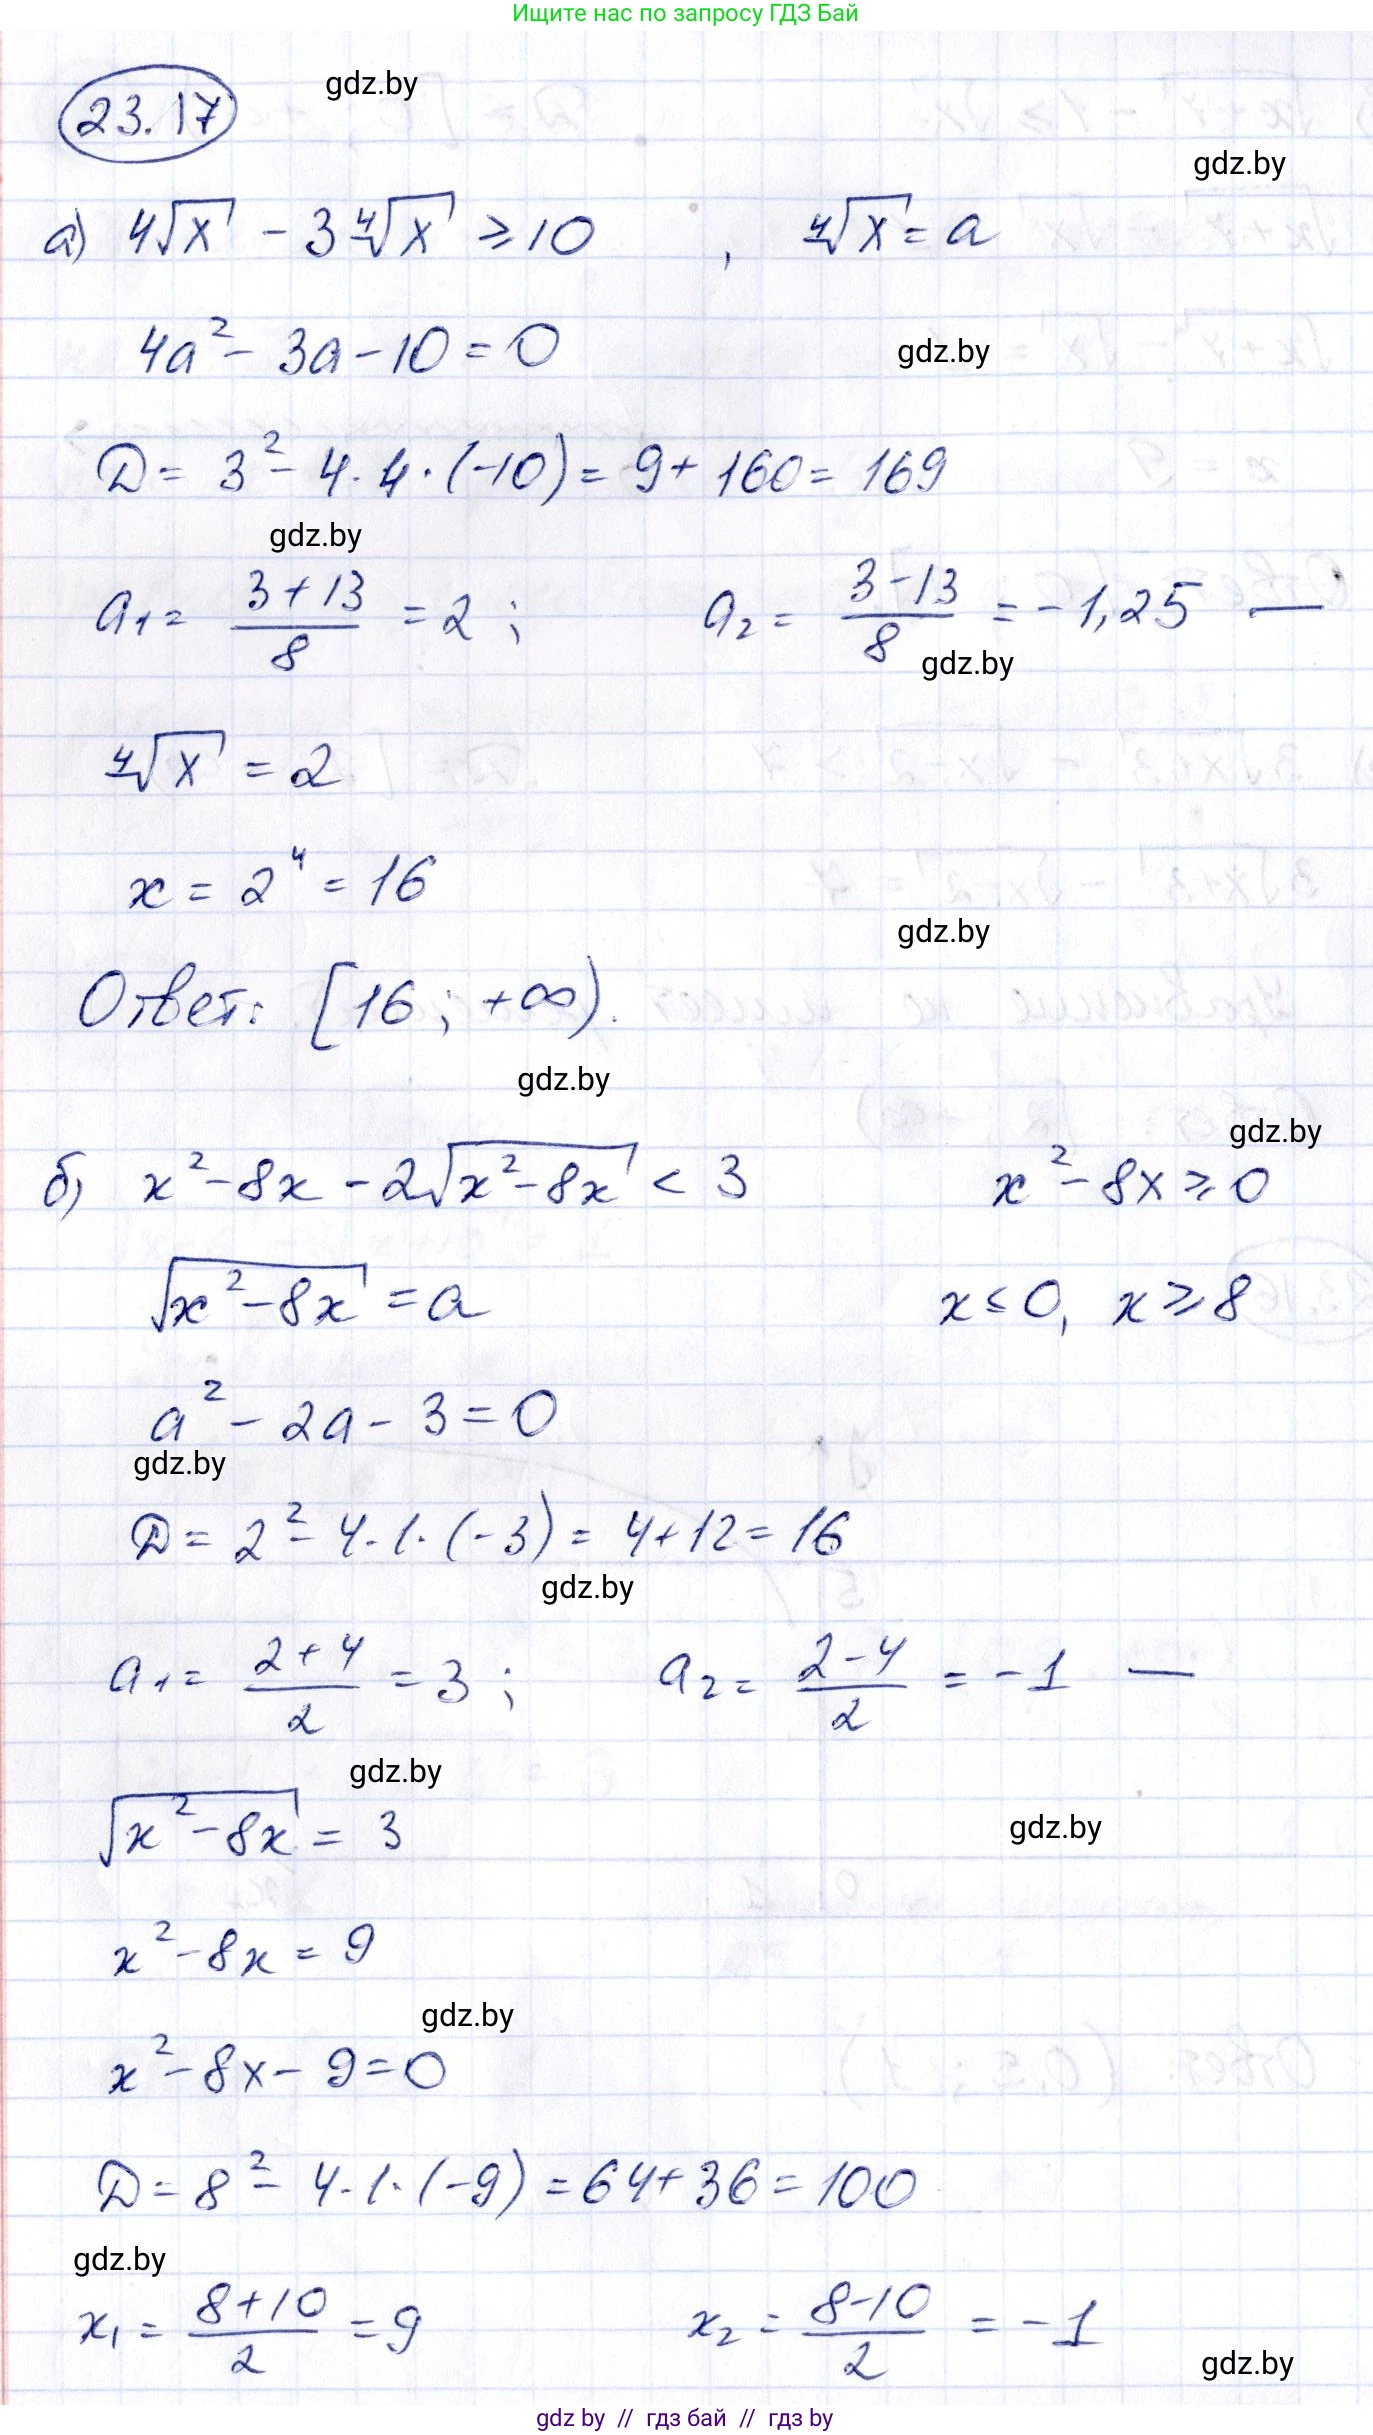 Ищите нас по запросу ГДЗ Бай
gdz.by
23.17
gdz.by
а) 4√x - 3∜x ≥ 10 , ∜x = a
4a² - 3a - 10 = 0
gdz.by
D = 3² - 4·4·(-10) = 9 + 160 = 169
gdz.by
a₁ = (3+13)/8 = 2 ; a₂ = (3-13)/8 = -1,25 —
gdz.by
∜x = 2
x = 2⁴ = 16
gdz.by
Ответ: [16; +∞).
gdz.by
gdz.by
б) x² - 8x - 2√(x² - 8x) < 3 x² - 8x ≥ 0
√(x² - 8x) = a x ≤ 0, x ≥ 8
a² - 2a - 3 = 0
gdz.by
D = 2² - 4·1·(-3) = 4 + 12 = 16
gdz.by
a₁ = (2+4)/2 = 3 ; a₂ = (2-4)/2 = -1 —
gdz.by
√(x² - 8x) = 3
gdz.by
x² - 8x = 9
gdz.by
x² - 8x - 9 = 0
D = 8² - 4·1·(-9) = 64 + 36 = 100
gdz.by
x₁ = (8+10)/2 = 9 x₂ = (8-10)/2 = -1
gdz.by
gdz by // гдз бай // гдз by